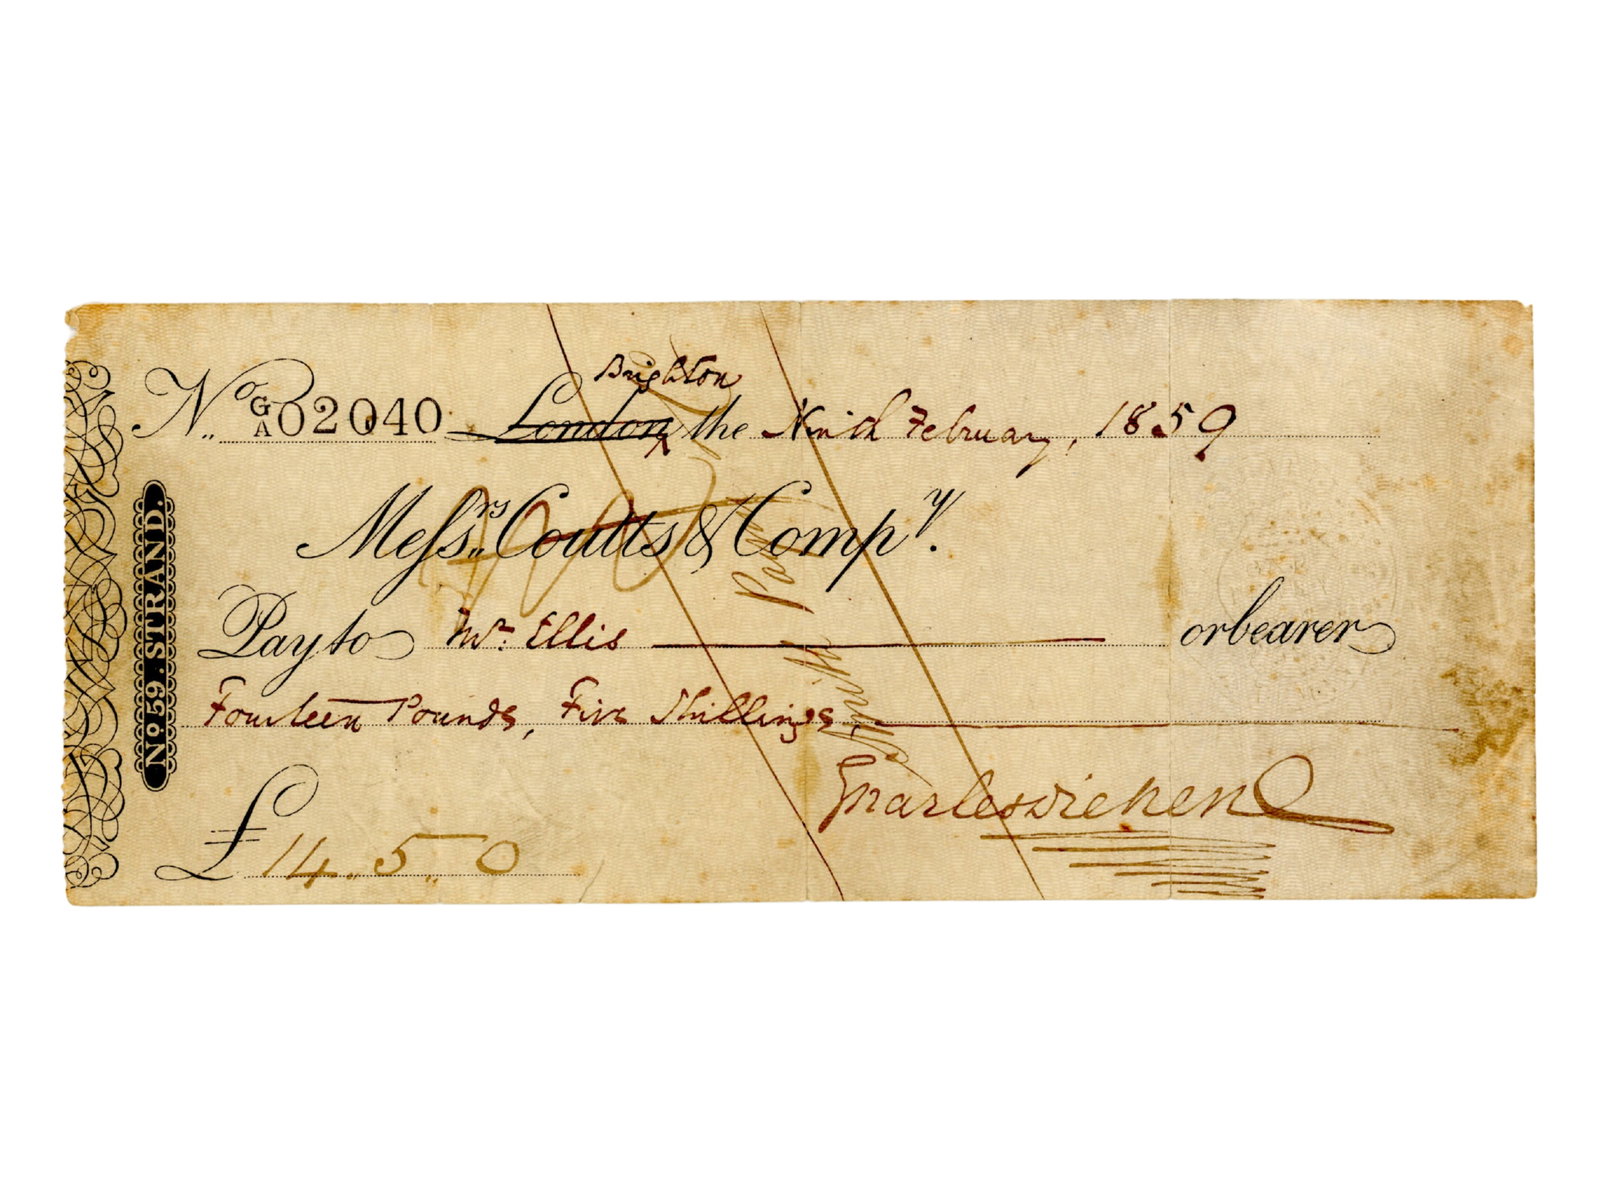 Brighton
No. G/A 02040 London the Ninth February, 1859
Messrs. Coutts & Compy.
Pay to Mr. Ellis or bearer
Fourteen Pounds, Five Shillings
Charles Dickens
£14.. 5.. 0
No 59. STRAND.
Smith Payne